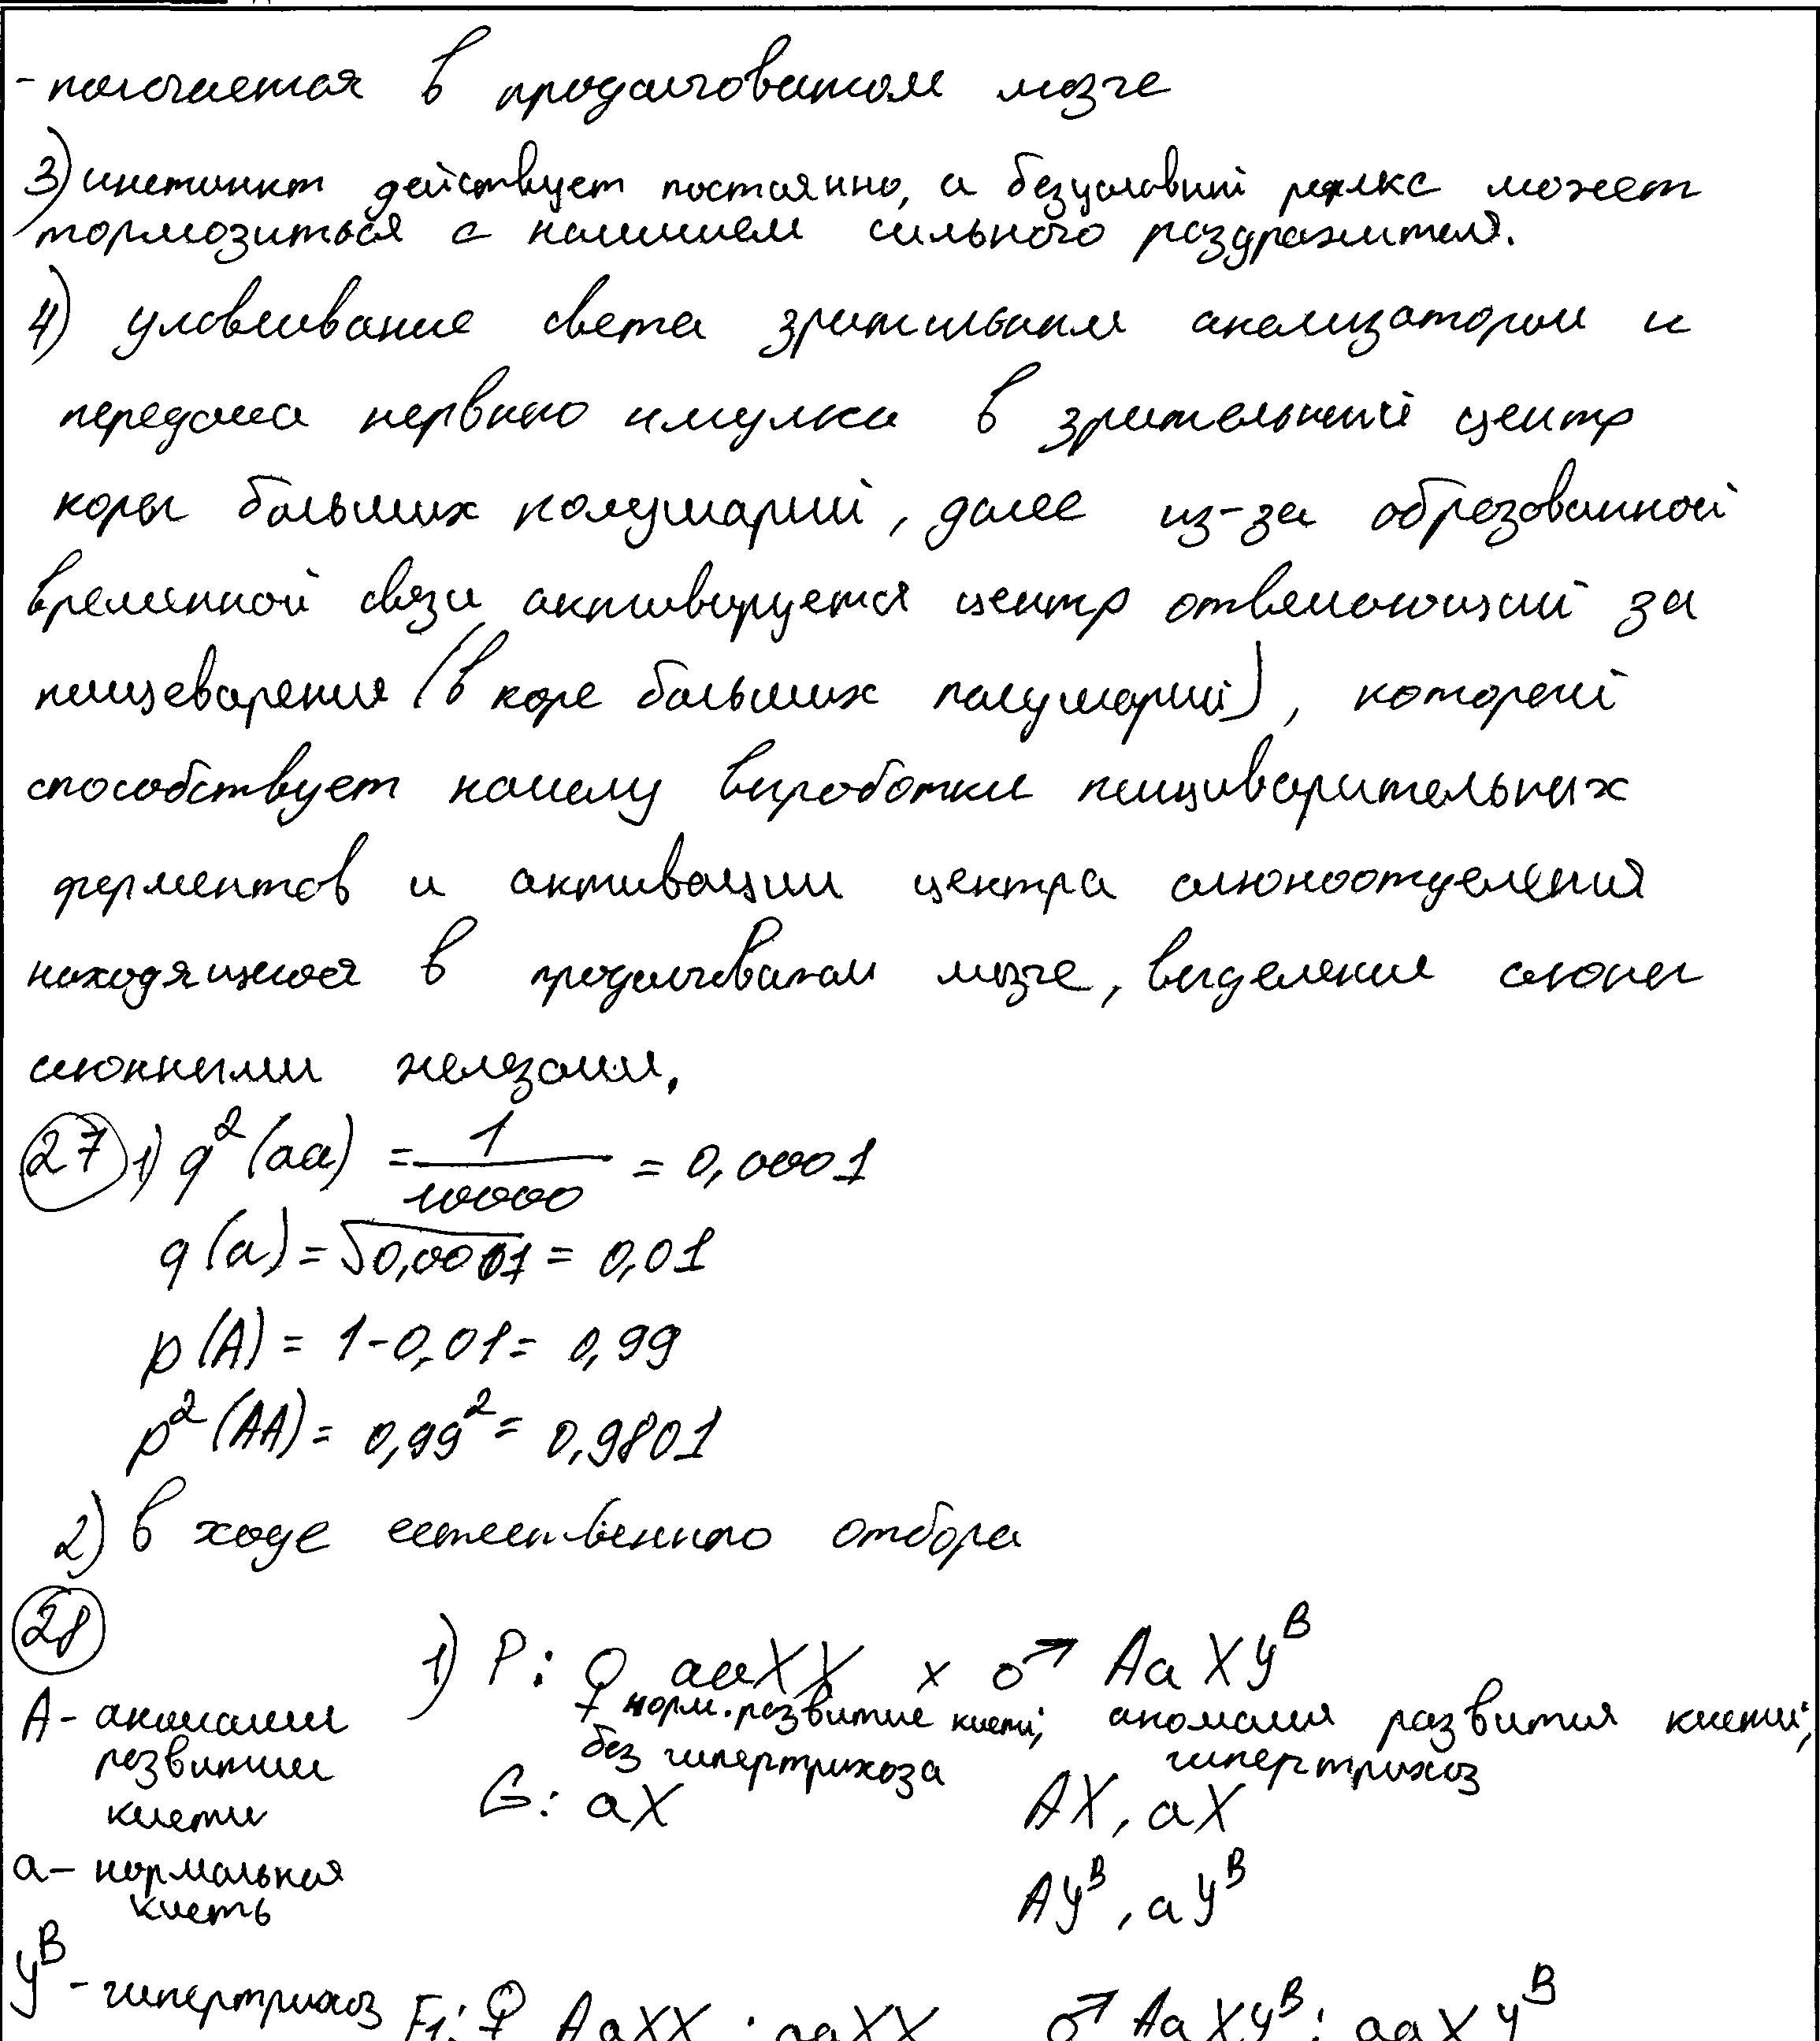 - получается в продолговатом мозге
3) инстинкт действует постоянно, а безусловий рефлкс может
тормозиться с наличием сильного раздражителя.
4) улавливание света зрительным анализатором и
передача нервного имулса в зрительный центр
коры больших полушарий, далее из-за образованной
временной связи активируется центр отвечающий за
пищеварения (в коре больших полушарий), который
способствует началу выработки пищиварительных
ферментов и активации центра слюноотделения
находящегося в продолговатом мозге, выделение слюны
слюнными железами.
27 1) q²(aa) = 1/10000 = 0,0001
q(a) = √0,0001 = 0,01
p(A) = 1-0,01 = 0,99
p²(AA) = 0,99² = 0,9801
2) в ходе естественного отбора
28
1) P: ♀ aaXX x ♂ AaXYᴮ
норм. развитие кисти; аномалия развития кисти;
без гипертрихоза гипертрихоз
A - аномалии
развитии
кисти
G: aX AX, aX
AYᴮ, aYᴮ
a - нормальная
кисть
Yᴮ - гипертрихоз
F1: ♀ AaXX : aaXX ♂ AaXYᴮ : aaXYᴮ